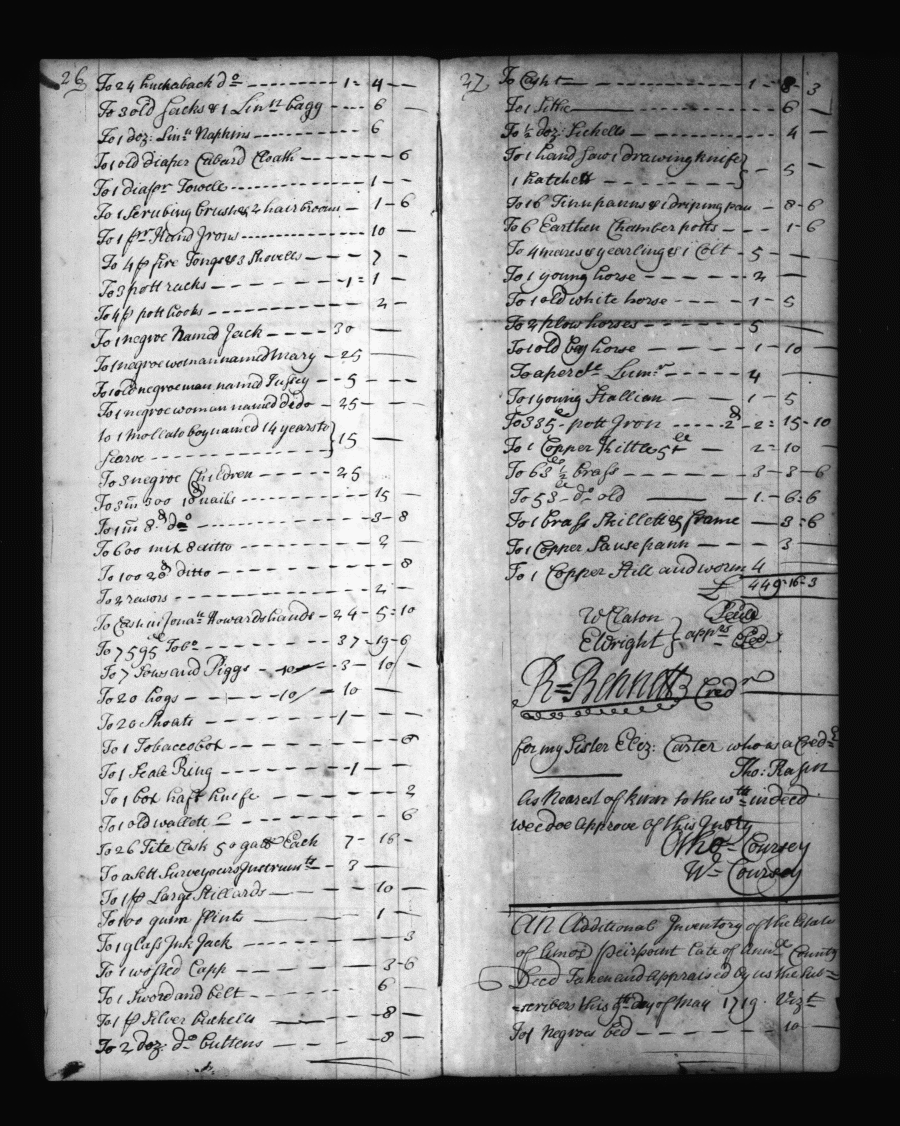 26
To 24 huckaback do 1 = 4 -
To 3 old Sacks & 1 Linnn bagg - 6 -
To 1 doz: Linn Napkins - 6
To 1 old diaper Cubard Cloath - 6
To 1 diapr Towell - 1 -
To 1 Scrubing brush & 2 hair brooms - 1 - 6
To 1 pr Hand Irons - 10 -
To 4 p fire Tongs & 3 Shovells - 7 -
To 3 pott racks - 1 = 1 -
To 4 p pott hooks - 2 -
To 1 negroe Named Jack - 30 -
To 1 negroe woman named Mary - 25
To 1 old negroe man named - 5 -
To 1 negroe woman named dido - 25 -
to 1 Mollato boy named 14 years to
Searve - 15 -
To 3 negroe Children - 25
To 3m 300 10d nails - 15 -
To 1m 8d do - 3 - 8
To 600 mixt 8 ditto - 2 -
To 100 20d ditto - 8
To 2 rasors - 2 -
To Cash in Jonan Howards hands - 24 - 5 = 10
To 7595 Tobo - 37 - 19 - 6
To 7 Sows and Piggs - 10/ - 3 - 10/
To 20 hogs - 10/ - 10 -
To 20 Shoats - 1 -
To 1 Tobacco box - 6
To 1 Seale Ring - 1 -
To 1 box haft knife - 2
To 1 old wallett - 6
To 26 Tite Cask 50 galls Each 7 - 16 -
To a Sett Surveyours Instrumts - 3 -
To 1 p Large Stillards - 10 -
To 100 gunn flints - 1 -
To 1 glass Ink Jack - 3
To 1 wosted Capp - 3 - 6
To 1 Sword and belt - 6 -
To 1 p Silver buckells - 8 -
To 2 doz: do buttens - 8 -
27
To Cash - 1 - 8 - 3
To 1 Sithe - 6 -
To ½ doz: Sickells - 4 -
To 1 hand Saw 1 drawing knife
1 hatchett - 5 -
To 16 Tinn panns & 1 driping pan - 8 - 6
To 6 Earthen Chamber potts - 1 - 6
To 4 mares & yearling & 1 Colt - 5 -
To 1 young horse - 2 -
To 1 old white horse - 1 - 5
To 2 plow horses - 5 -
To 1 old bay horse - 1 - 10
To a percle Lumr - 4
To 1 young Stallian - 1 - 5
To 335 le pott Iron - 2d - 2 = 15 - 10
To 1 Copper Kittle - 2 = 10
To 63 ½ le brass - 3 - 3 - 6
To 53 le do old - 1 - 6 = 6
To 1 brass Skillett & frame - 3 = 6
To 1 Copper Sausepann - 3
To 1 Copper Still and worm 4
£ 449 - 16 - 3
W Claton
E Wright } apprs
R = Bennett Credr
for my Sister Eliz: Carter who is a Cred
Tho: Rasin
As Nearest of kinn to the wth in decd
wee doe Approve of this Invty
Otho = Coursey
Wm Coursey
An Additional Inventory of the Estate
of Amos Peirpoint Late of Annl County
Decd Taken and appraised by us the Sub =
= scribers this 9th day of May 1719. Vizt
To 1 Negroes bed - 10 -